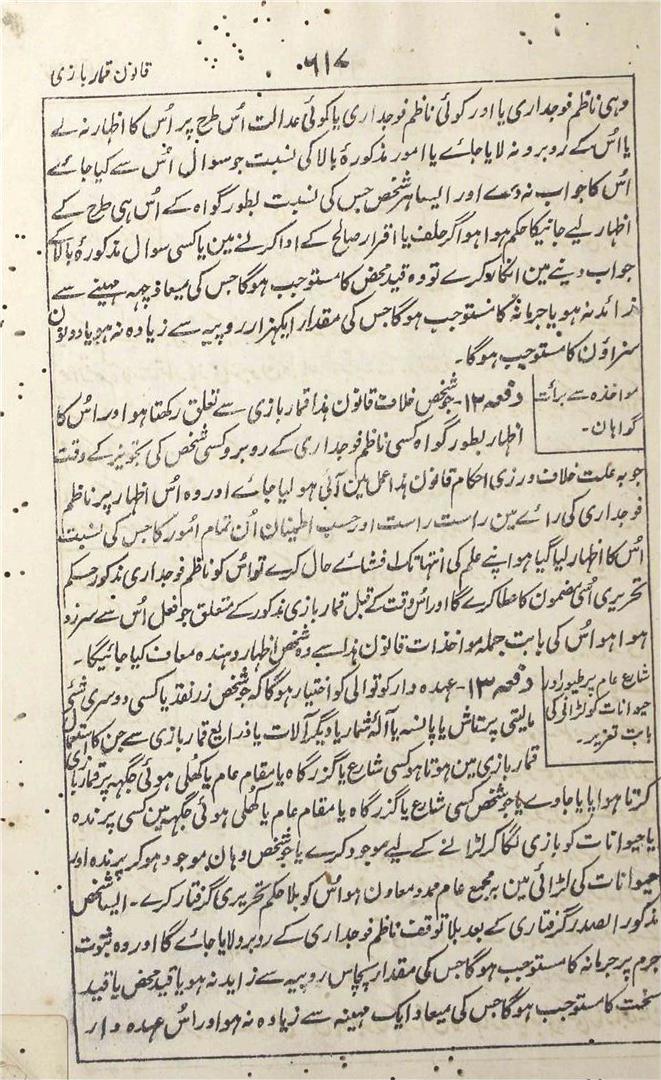 قانون قمار بازی
۶۱۷
وہی ناظم فوجداری یا اور کوئی ناظم فوجداری یا کوئی عدالت اُس طرح پر اُس کا اظہار نہ لے
یا اُس کے روبرو نہ لایا جائے یا امور مذکورۂ بالا کی نسبت جو سوال اُس سے کیا جائے
اُس کا جواب نہ دے اور ایسا ہر شخص جس کی نسبت بطور گواہ کے اُس ہی طرح کے
اظہار لیے جانیکا حکم ہوا ہو اگر حلف یا اقرار صالح کے ادا کرنے مین یا کسی سوال مذکورۂ بالا کا
جواب دینے مین انکار کرے تو وہ قید محض کا مستوجب ہوگا جس کی میعاد چہہ مہینے سے
زائد نہ ہو یا جرمانہ کا مستوجب ہوگا جس کی مقدار ایکہزار روپیہ سے زیادہ نہ ہو یا دونون
سزاؤن کا مستوجب ہوگا۔
مواخذہ سے برأت
گواہان۔
دفعہ ۱۲- جو شخص خلاف قانون ہذا قمار بازی سے تعلق رکھتا ہو اور اُس کا
اظہار بطور گواہ کسی ناظم فوجداری کے روبرو کسی شخص کی تجویز کے وقت
جو بہ علت خلاف ورزی احکام قانون ہذا عمل مین آئی ہو لیا جائے اور وہ اُس اظہار پر ناظم
فوجداری کی رائے مین راست راست اور حسب اطمینان اُن تمام اُمور کا جس کی نسبت
اُس کا اظہار لیا گیا ہو اپنے علم کی انتہا تک افشائے حال کرے تو اُس کو ناظم فوجداری مذکور حکم
تحریری اُسی مضمون کا عطا کرے گا اور اُس وقت کے قبل قمار بازی مذکور کے متعلق جو فعل اُس سے سرزد
ہوا ہو اُس کی بابت جملہ مواخذات قانون ہذا سے وہ شخص اظہار دہندہ معاف کیا جائیگا۔
شارع عام پر طیور اور
حیوانات کو لڑانی کی
بابت تعزیر۔
دفعہ ۱۳- عہدہ دار کوتوالی کو اختیار ہوگا کہ جو شخص زر نقد یا کسی دوسری شئی
مالیتی پر تاش یا پانسہ یا آلۂ شمار یا دیگر آلات یا ذرایع قمار بازی سے جن کا استعمال
قمار بازی مین ہوتا ہو کسی شارع یا گزرگاہ یا مقام عام یا کھلی ہوئی جگہہ پر قمار بازی
کرتا ہوا پایا جاوے یا جو شخص کسی شارع یا گزرگاہ یا مقام عام یا کھلی ہوئی جگہہ مین کسی پرندہ
یا حیوانات کو بازی لگا کر لڑانے کے لیے موجود کرے یا جو شخص وہان موجود ہو کر پرندہ اور
حیوانات کی لڑائی مین بر مجمع عام ممد و معاون ہو اُس کو بلا حکم تحریری گرفتار کرے۔ ایسا شخص
مذکور الصدر گرفتاری کے بعد بلا توقف ناظم فوجداری کے روبرو لایا جائے گا اور وہ ثبوت
جرم پر جرمانہ کا مستوجب ہوگا جس کی مقدار پچاس روپیہ سے زاید نہ ہو یا قید محض یا قید
سخت کا مستوجب ہوگا جس کی میعاد ایک مہینہ سے زیادہ نہ ہو اور اُس عہدہ دار